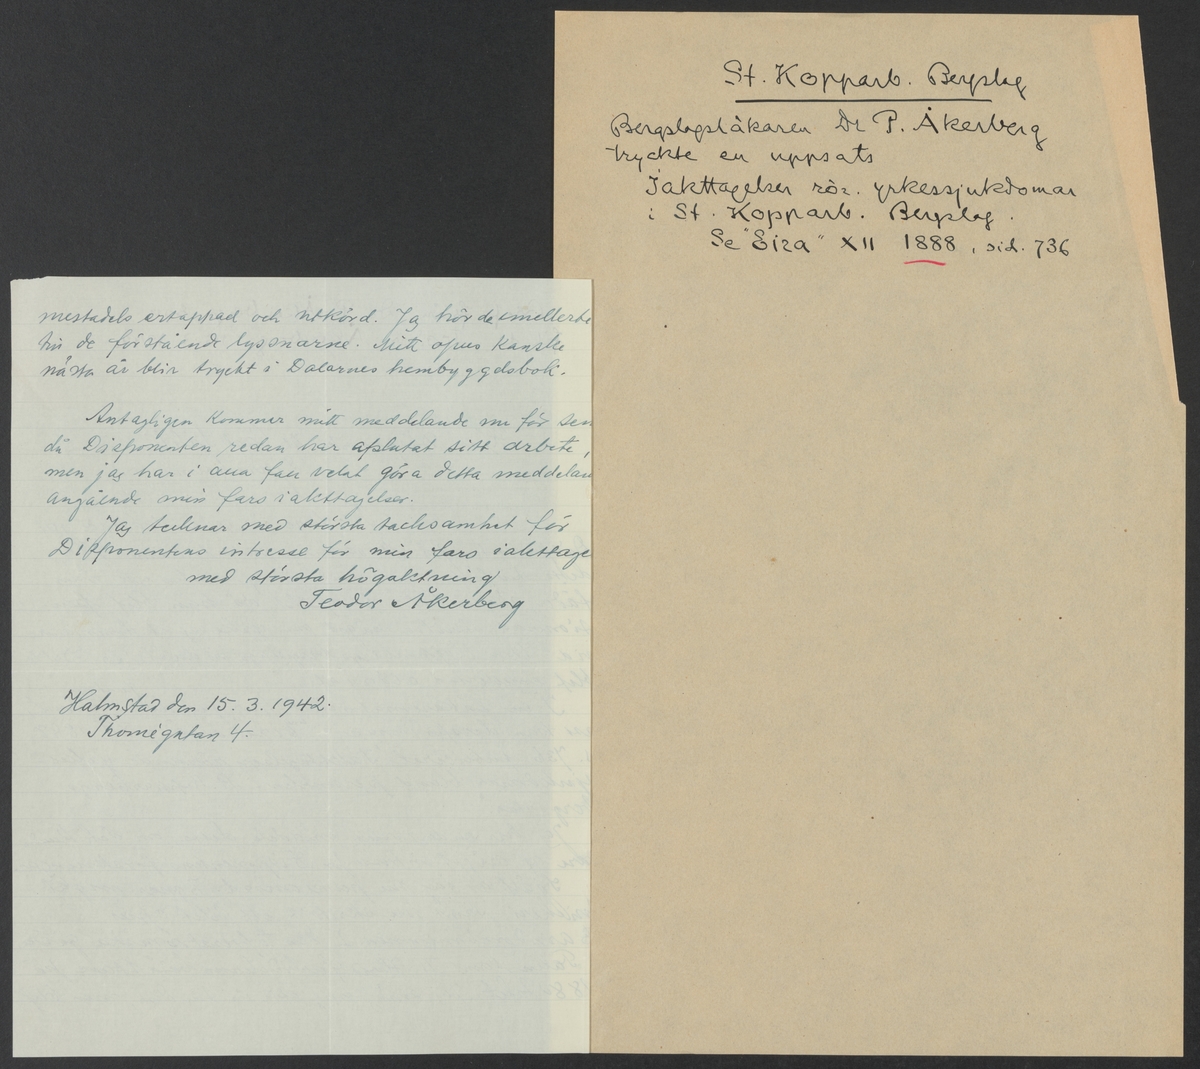 St. Kopparb. Bergslag
Bergslagsläkaren Dr P. Åkerberg
tryckte en uppsats
Iakttagelser rör. yrkessjukdomar
i St. Kopparb. Bergslag.
Se "Eira" XII 1888, sid. 736
mestadels ertappad och utkörd. Jag hörde emellertid
de förstående lyssnarne. Mitt opus kanske
nästa år blir tryckt i Dalarnes hembygdsbok.
Antagligen kommer mitt meddelande nu för sen
då Disponenten redan har afslutat sitt arbete,
men jag har i alla fall velat göra detta meddelan
angående min fars iakttagelser.
Jag tecknar med största tacksamhet för
Disponentens intresse för min fars iakttage
med största högaktning
Teodor Åkerberg
Halmstad den 15.3.1942.
Thomégatan 4.